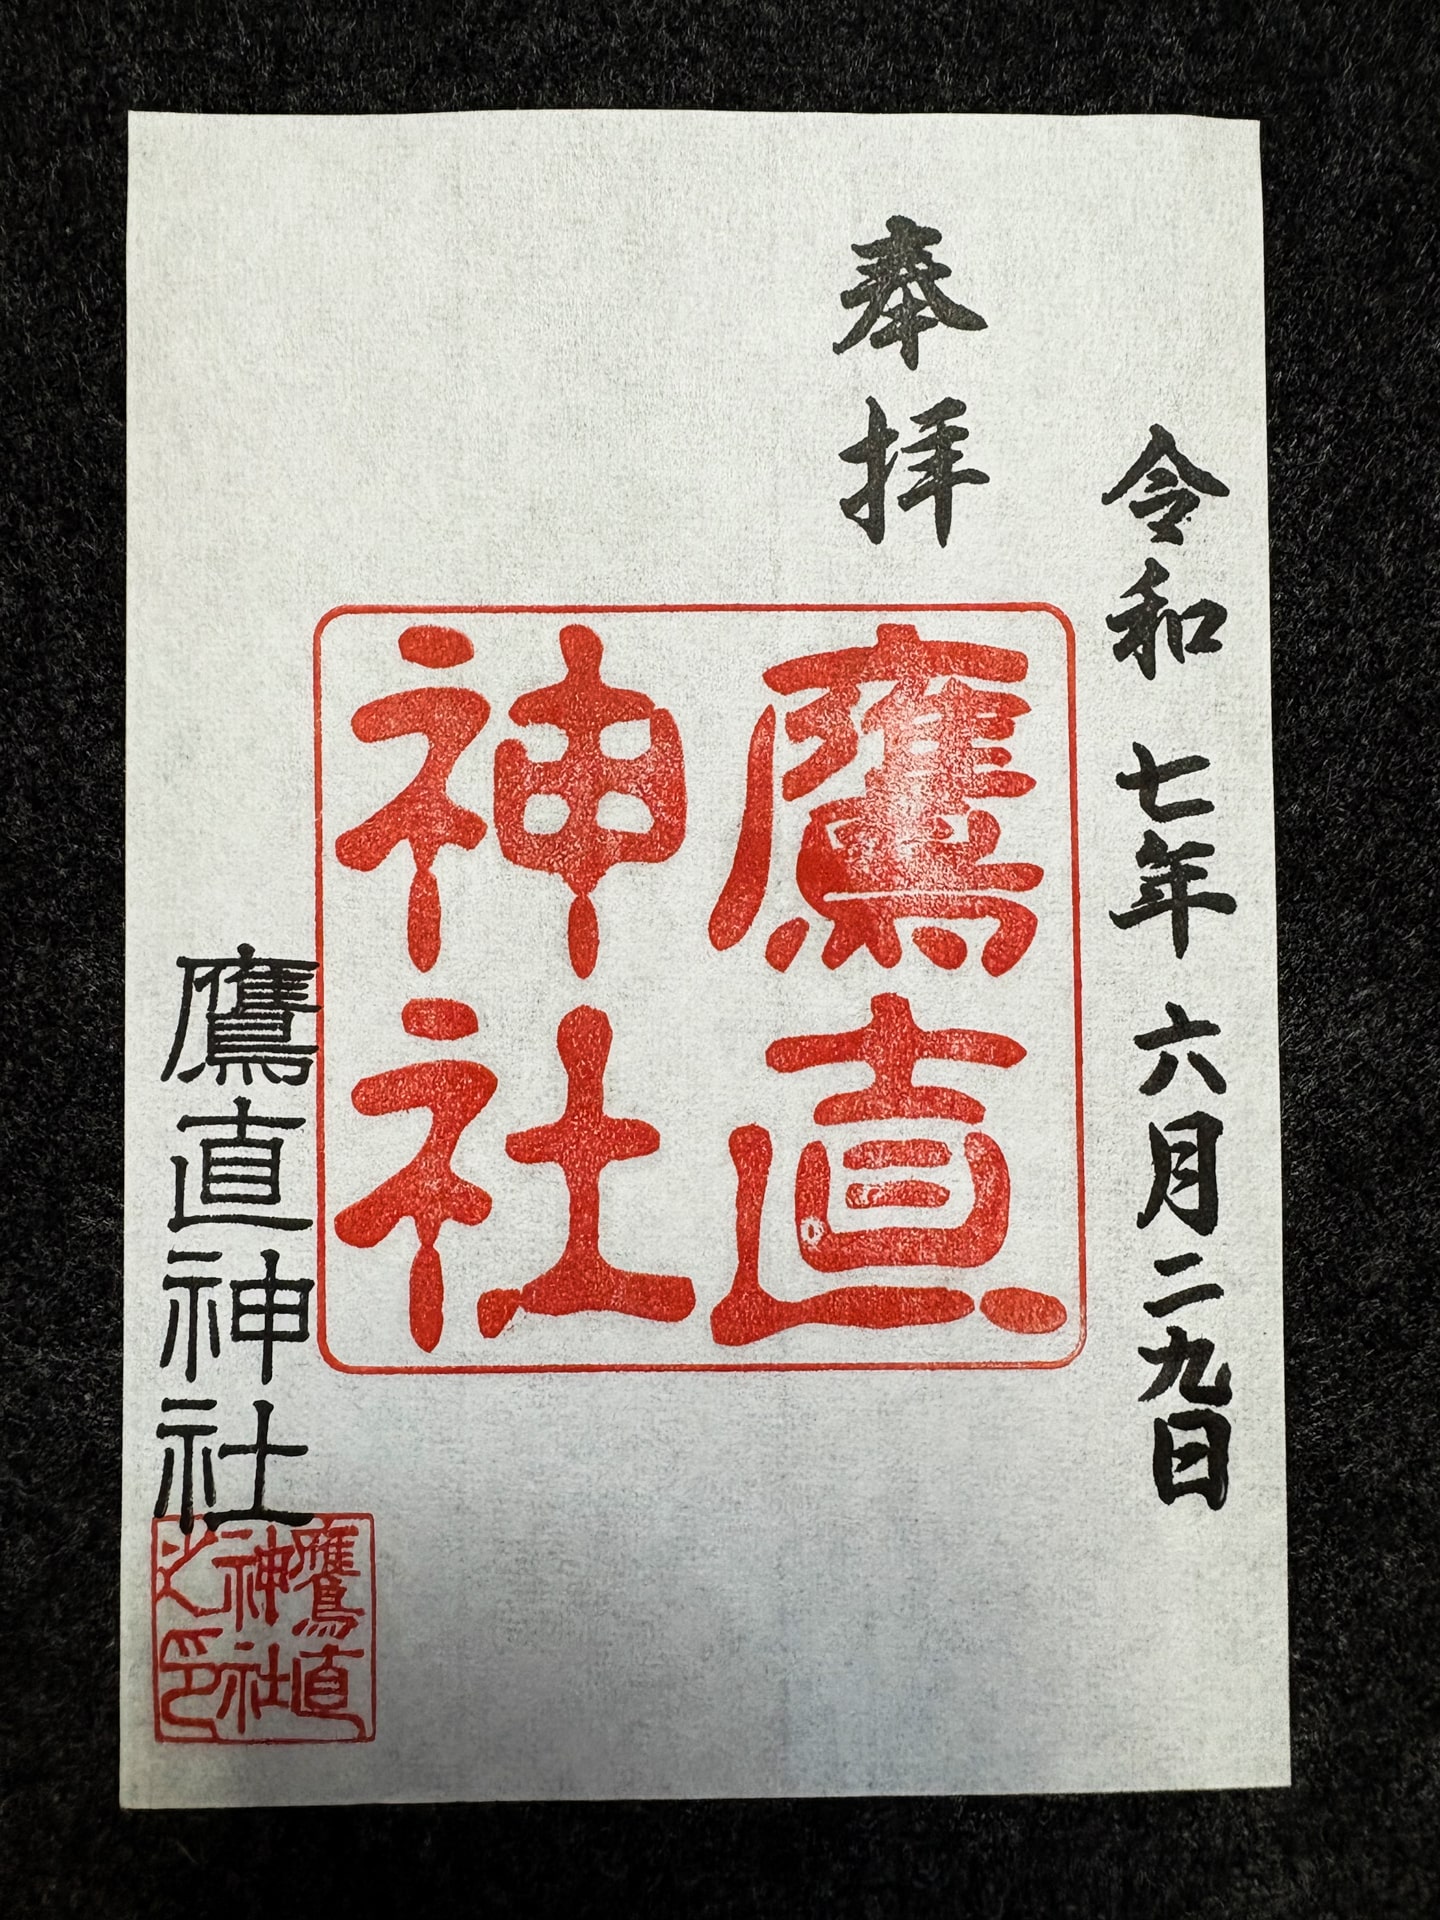 令和七年六月二九日
奉拝
鷹直
神社
鷹直神社
鷹直
神社
之印